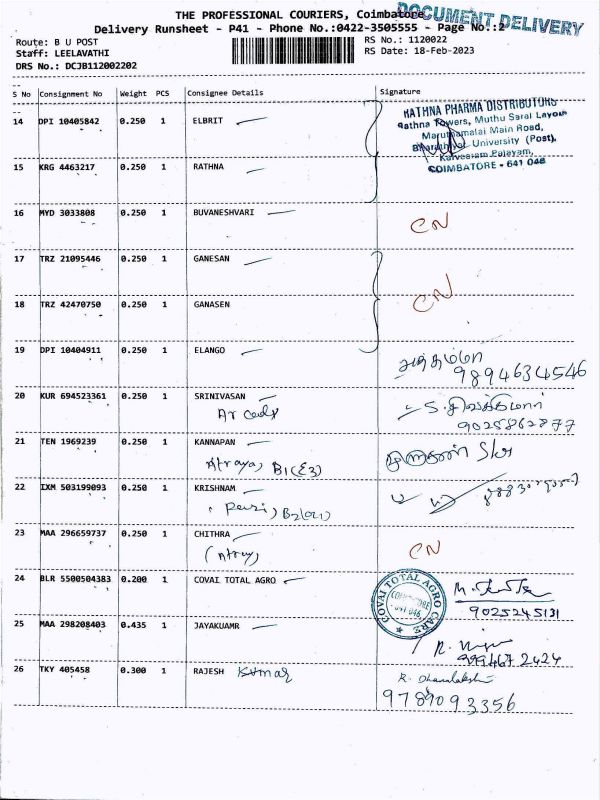 THE PROFESSIONAL COURIERS, Coimbatore
DOCUMENT DELIVERY
Delivery Runsheet - P41 - Phone No.:0422-3505555 - Page No.:2
Route: B U POST
RS No.: 1120022
Staff: LEELAVATHI
RS Date: 18-Feb-2023
DRS No.: DCJB112002202
S No Consignment No Weight PCS Consignee Details Signature
14 DPI 10405842 0.250 1 ELBRIT
RATHNA PHARMA DISTRIBUTORS
Rathna Towers, Muthu Saral Layout
Maruthamalai Main Road,
Bharathiar University (Post),
Kalveeram Palayam,
COIMBATORE - 641 046
15 KRG 4463217 0.250 1 RATHNA
16 MYD 3033808 0.250 1 BUVANESHVARI CN
17 TRZ 21095446 0.250 1 GANESAN
CN
18 TRZ 42470750 0.250 1 GANASEN
19 DPI 10404911 0.250 1 ELANGO
9894634546
20 KUR 694523361 0.250 1 SRINIVASAN
9025862877
21 TEN 1969239 0.250 1 KANNAPAN
Atraya, B1(E3)
22 IXM 503199093 0.250 1 KRISHNAM
23 MAA 296659737 0.250 1 CHITHRA CN
24 BLR 5500504383 0.200 1 COVAI TOTAL AGRO
COVAI TOTAL AGRO CARE
COIMBATORE
641 046
9025245131
25 MAA 298208403 0.435 1 JAYAKUAMR
26 TKY 405458 0.300 1 RAJESH Kumar
R. Dhanalakshmi
9789093356